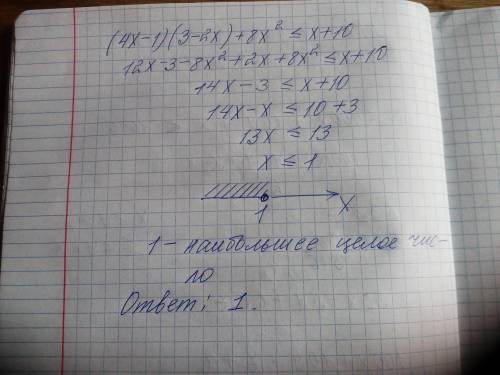 (4x-1)(3-2x)+8x² ≤ x+10
12x-3-8x²+2x+8x² ≤ x+10
14x-3 ≤ x+10
14x-x ≤ 10+3
13x ≤ 13
x ≤ 1
1 x
1 - наибольшее целое чис-
ло
Ответ: 1.